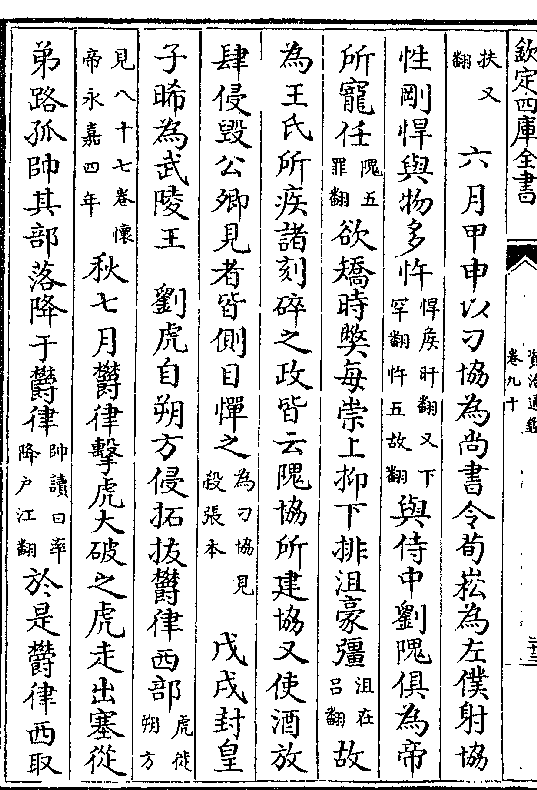 欽定四庫全書
資治通鑑
卷九十
扶又翻　六月甲申以刁協為尚書令荀崧為左僕射協
性剛悍與物多忤悍矦旰翻又下罕翻忤五故翻與侍中劉隗俱為帝
所寵任隗五罪翻欲矯時弊每崇上抑下排沮豪彊沮在呂翻故
為王氏所疾諸刻碎之政皆云隗協所建協又使酒放
肆侵毀公卿見者皆側目憚之為刁協見殺張本　戊戌封皇
子晞為武陵王　劉虎自朔方侵拓拔鬱律西部虎徙朔方
見八十七卷懷帝永嘉四年秋七月鬱律擊虎大破之虎走出塞從
弟路孤帥其部落降于鬱律帥讀曰率降户江翻於是鬱律西取